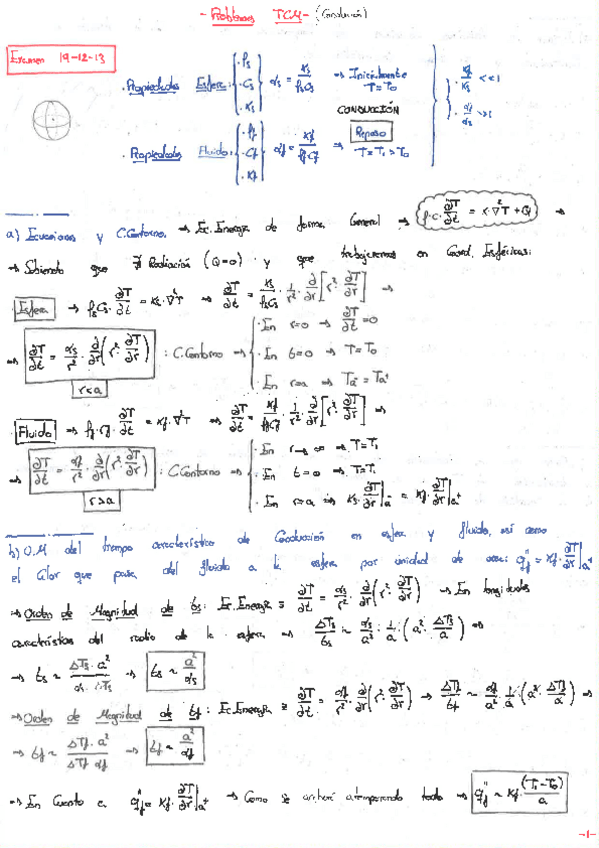 - Problemas TCM - (Conducción)
Examen 19-12-13
· Propiedades Esfera: { · ρs · Cs · Ks } αs = Ks/ρsCs → Inicialmente T = To
CONDUCCIÓN
· Propiedades Fluido: { · ρf · Cf · Kf } αf = Kf/ρfCf ⇒ Reposo T = T1 > To
· Kf/Ks << 1
a) Ecuaciones y C. Contorno. → Ec. Energía de forma General → ρ·c·∂T/∂t = K·∇²T + Q →
→ Sabiendo que ∄ Radiación (Q=0) y que trabajaremos en Coord. Esféricas:
Esfera → ρsCs·∂T/∂t = Ks·∇²T → ∂T/∂t = Ks/ρsCs · 1/r² · ∂/∂r [r²·∂T/∂r] →
→ ∂T/∂t = αs/r² · ∂/∂r (r²·∂T/∂r) : C. Contorno → { · En r=0 → ∂T/∂t = 0
· En t=0 → T = To
· En r=a → Ta⁻ = Ta⁺
r<a
Fluido → ρf·Cf·∂T/∂t = Kf·∇²T → ∂T/∂t = Kf/ρfCf · 1/r² · ∂/∂r [r²·∂T/∂r] →
→ ∂T/∂t = αf/r² · ∂/∂r (r²·∂T/∂r) : C. Contorno → { · En r→∞ → T = T1
· En t=0 → T = T1
· En r=a → Ks·∂T/∂r|a⁻ = Kf·∂T/∂r|a⁺
r>a
b) O.M del tiempo característico de Conducción en esfera y fluido, así como
el Calor que pasa del fluido a la esfera por unidad de área: q''f = Kf·∂T/∂r|a⁺
→ Orden de Magnitud de ts: Ec. Energía ≡ ∂T/∂t = αs/r² · ∂/∂r (r²·∂T/∂r) → En longitudes
características del radio de la esfera → ΔTs/ts ~ αs/a² · 1/a · (a²·ΔTs/a) →
→ ts ~ ΔTs·a²/αs·ΔTs → ts ~ a²/αs
→ Orden de Magnitud de tf: Ec. Energía ≡ ∂T/∂t = αf/r² · ∂/∂r (r²·∂T/∂r) → ΔTf/tf ~ αf/a² · 1/a · (a²·ΔTf/a) →
→ tf ~ ΔTf·a²/ΔTf·αf → tf ~ a²/αf
→ En Cuanto a q''f = Kf·∂T/∂r|a⁺ → Como se atemperando todo → q''f ~ Kf·(T1-To)/a
-1-